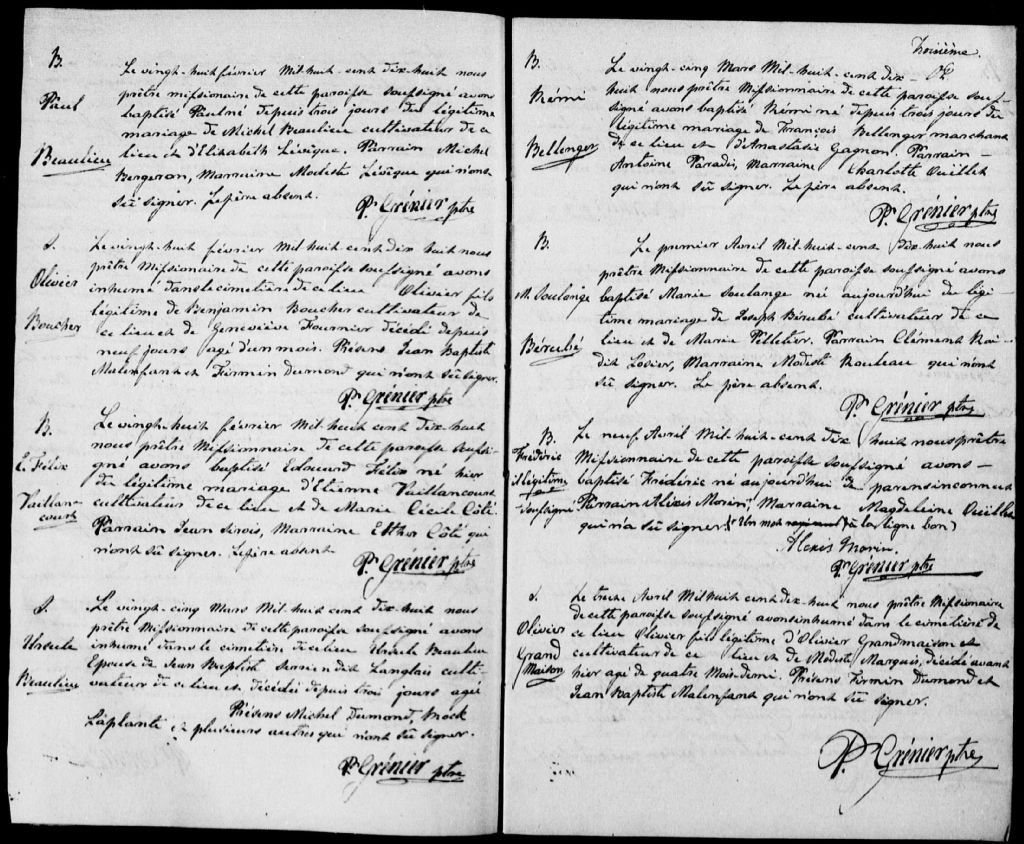 B.
Paul
Beaulieu
Le vingt-huit février Mil-huit-cent dix-huit nous
prêtre missionaire de cette paroisse soussigné avons
baptisé Paul né depuis trois jours du légitime
mariage de Michel Beaulieu cultivateur de ce
lieu et d'Elisabeth Lévêque. Parrain Michel
Bergeron, Marraine Modeste Lévêque qui n'ont
sû signer. Le père absent.
Pr. Grénier ptre
S.
Olivier
Boucher
Le vingt-huit février Mil huit-cent dix huit nous
prêtre Missionaire de cette paroisse soussigné avons
inhumé dans le cimetière de ce lieu Olivier fils
légitime de Benjamin Boucher cultivateur de
ce lieu et de Geneviève Fournier décédé depuis
neuf jours agé d'un mois. Présens Jean Baptiste
Malenfant et Firmin Dumond qui n'ont sû signer.
Pr. Grénier ptre
B.
E. Félix
Vaillan-
court
Le vingt-huit février Mil huit cent dix-huit
nous prêtre Missionaire de cette paroisse soussi-
gné avons baptisé Edouard Félix né hier
du légitime mariage d'Etienne Vaillancourt
cultivateur de ce lieu et de Marie Cécile Côté.
Parrain Jean Sirois, Marraine Esther Côté qui
n'ont sû signer. Le père absent
Pr. Grénier ptre
S.
Ursule
Beaulieu
Le vingt-cinq Mars Mil-huit cent dix-huit nous
prêtre Missionnaire de cette paroisse soussigné avons
inhumé dans le cimetière de ce lieu Ursule Beaulieu
Epouse de Jean Baptiste dit Langlais culti-
vateur de ce lieu et décédé depuis trois jours agée
Présens Michel Dumond,
Laplante et plusieurs autres qui n'ont sû signer.
Pr. Grénier ptre
Troisième.
B.
Rémi
Bellenger
Le vingt-cinq Mars Mil-huit-cent dix-
huit nous prêtre Missionnaire de cette paroisse sous-
signé avons baptisé Rémi né depuis trois jours du
légitime mariage de François Bellenger marchand
de ce lieu et d'Anastasie Gagnon. Parrain -
Antoine Paradis, Marraine Charlotte Ouillet
qui n'ont sû signer. Le père absent.
Pr. Grénier ptre
B.
M. Soulange
Bérubé
Le premier Avril Mil-huit-cent dix-huit nous
prêtre Missionnaire de cette paroisse soussigné avons
baptisé Marie Soulange né aujourd'hui du légi-
time mariage de Joseph Bérubé cultivateur de ce
lieu et de Marie Pelletier. Parrain Clément
dit Losier, Marraine Modeste Rouleau qui n'ont
sû signer. Le père absent.
Pr. Grénier ptre
B.
Frédéric
illégitime
soussigné
Le neuf Avril Mil-huit-cent dix huit nous prêtre
Missionnaire de cette paroisse soussigné avons -
baptisé Frédéric né aujourd'hui de parens inconnus
Parrain Alexis Morin, Marraine Magdeleine Ouillet
qui n'a sû signer. (Un mot à la ligne bon)
Alexis Morin.
Pr. Grénier ptre
S.
Olivier
Grand
Maison
Le treize Avril Mil huit cent dix-huit nous prêtre Missionaire
de cette paroisse soussigné avons inhumé dans le cimetière de
ce lieu Olivier fils légitime d'Olivier Grandmaison et
cultivateur de ce lieu et de Modeste Marquis, décédé avant
hier agé de quatre Mois-demi. Présens Firmin Dumond et
Jean Baptiste Malenfant qui n'ont sû signer.
Pr. Grénier ptre